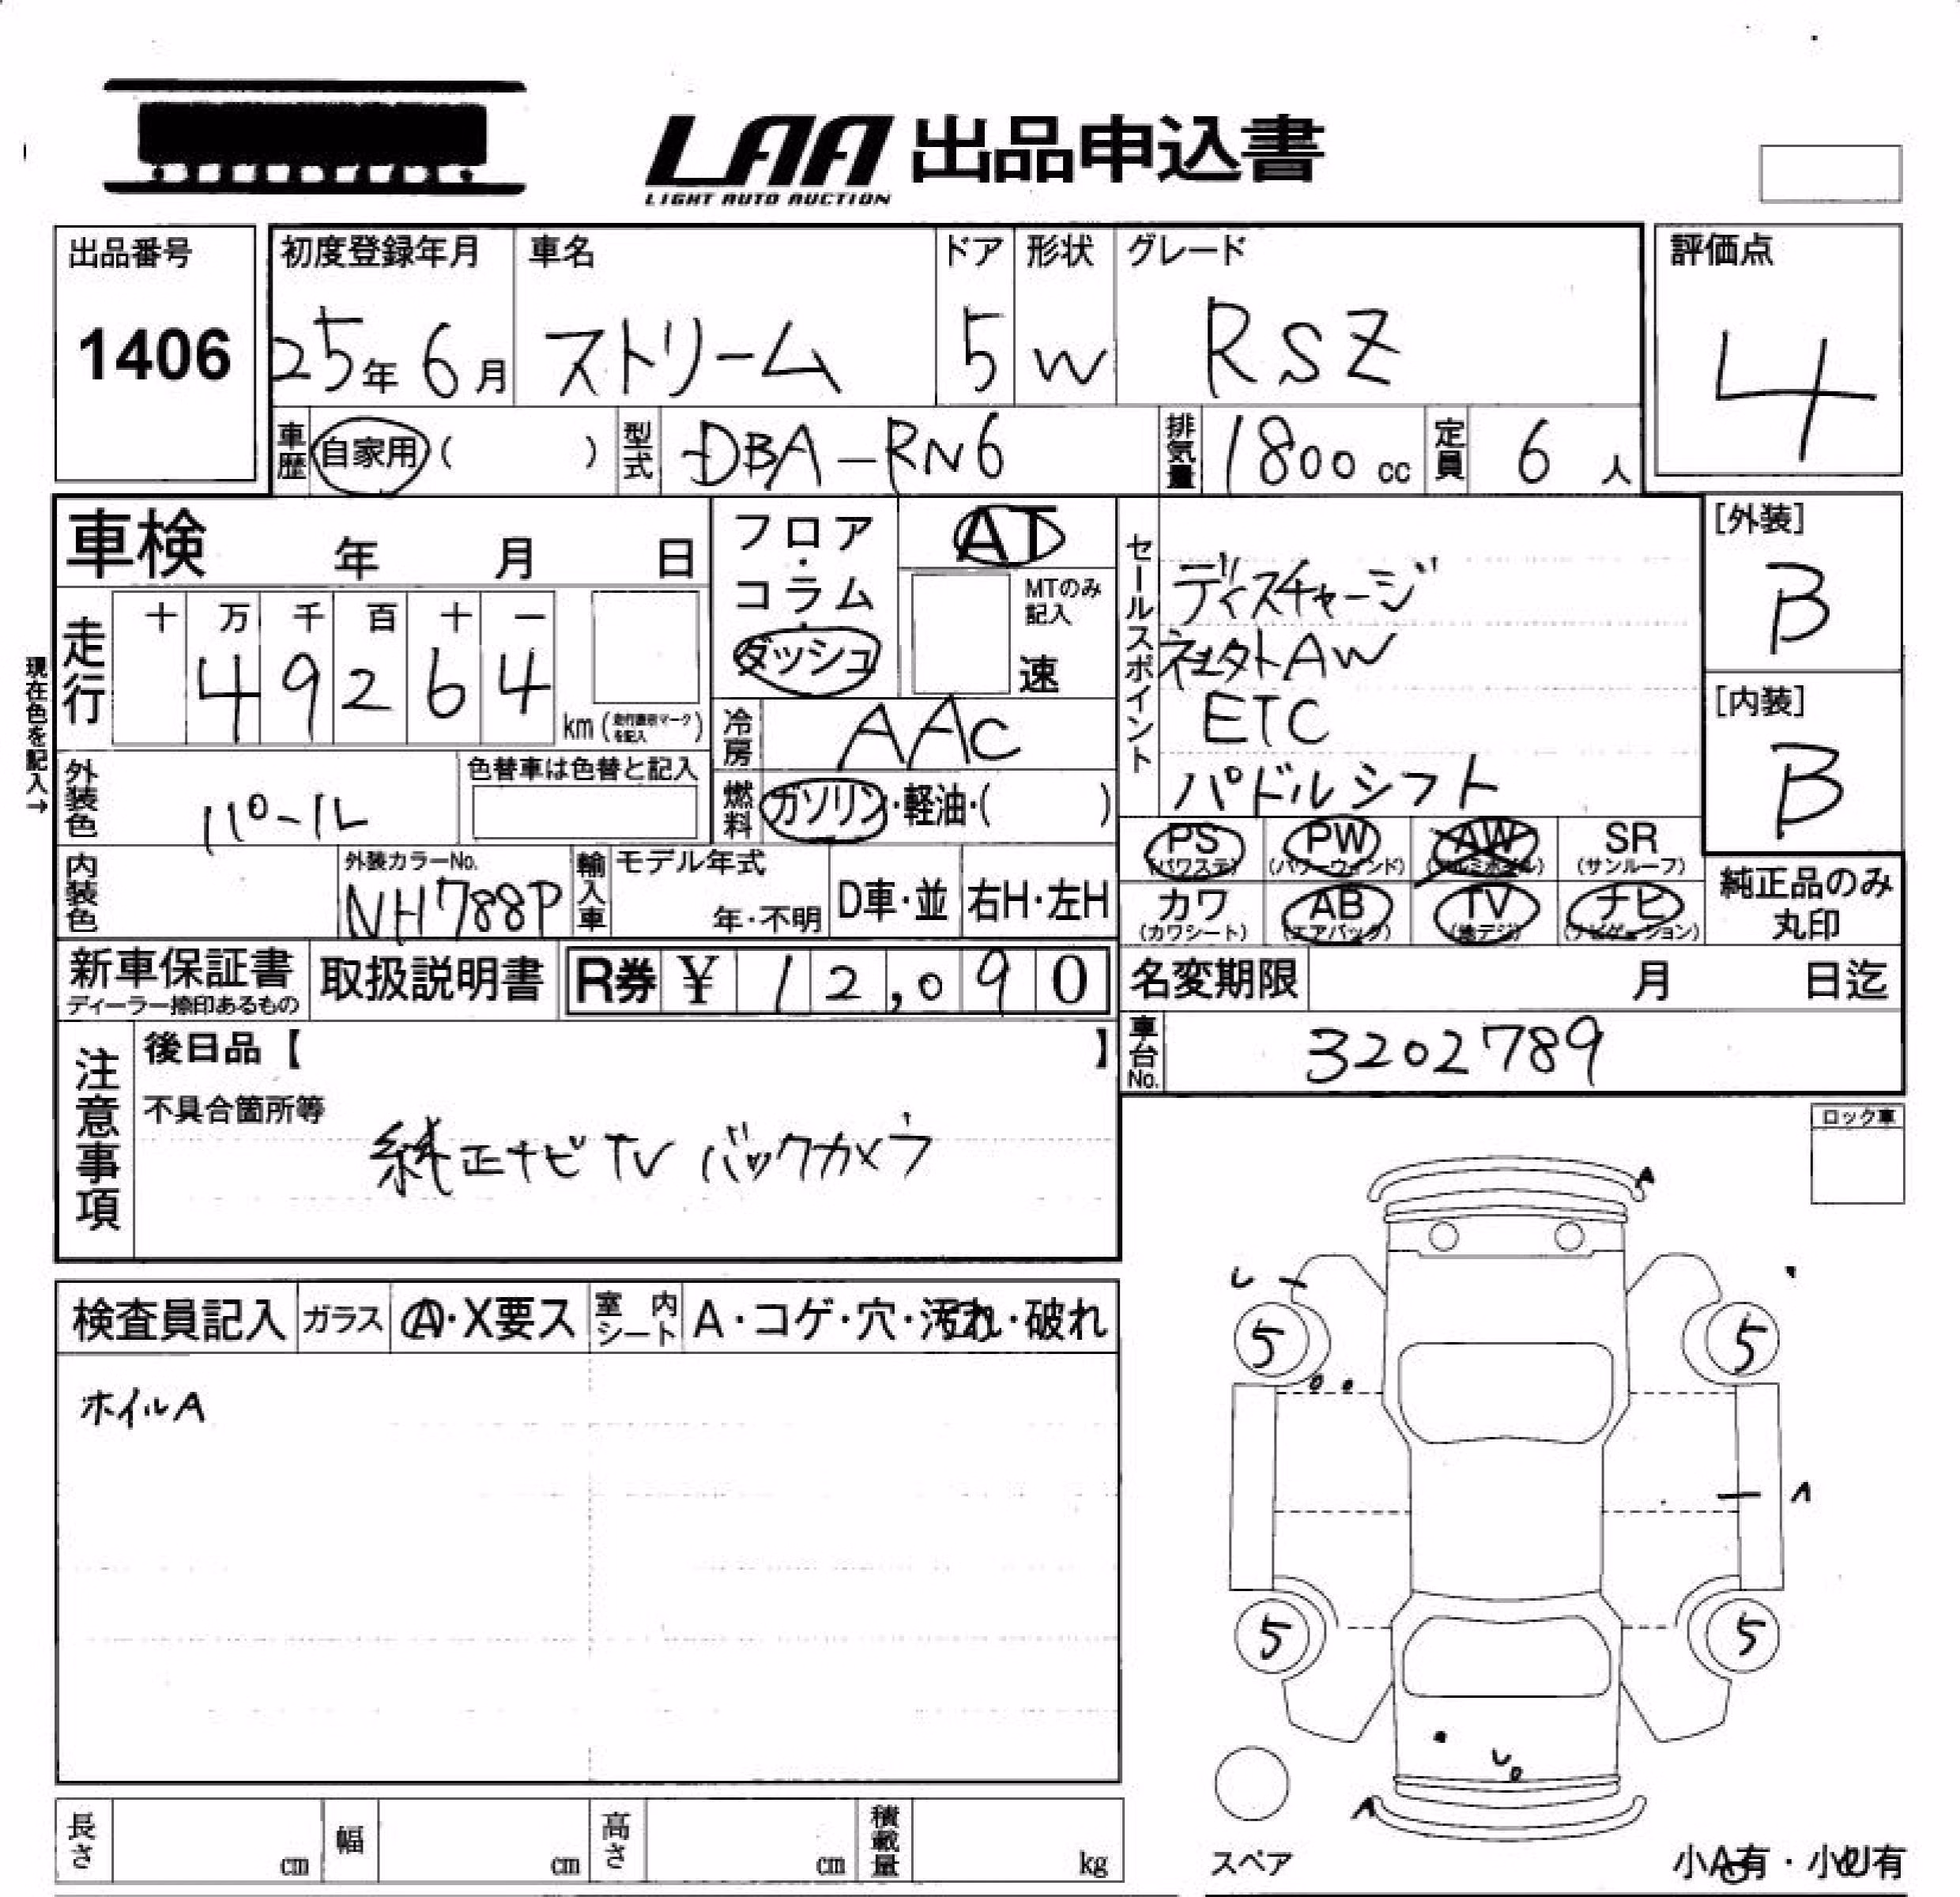 LAA 出品申込書
LIGHT AUTO AUCTION
出品番号
1406
初度登録年月
25年 6月
車名
ストリーム
ドア
5
形状
W
グレード
RSZ
評価点
4
車歴 自家用 ( )
型式 DBA-RN6
排気量 1800 cc
定員 6 人
車検 年 月 日
走行
十 万 千 百 十 一
4 9 2 6 4
km (
を記入 )
現在色を記入→
フロア・コラム・ダッシュ
AT
MTのみ記入
速
冷房 AAC
燃料 ガソリン・軽油・( )
セールスポイント
ディスチャージ
AW
ETC
パドルシフト
[外装]
B
[内装]
B
外装色 パール
色替車は色替と記入
内装色
外装カラーNo.
NH788P
輸入車
モデル年式
年・不明
D車・並
右H・左H
PS (パワステ)
PW (パワーウィンド)
AW (アルミホイル)
SR (サンルーフ)
カワ (カワシート)
AB (エアバック)
TV (地デジ)
ナビ (ナビゲーション)
純正品のみ丸印
新車保証書
ディーラー捺印あるもの
取扱説明書
R券 ¥ 12,090
名変期限 月 日迄
車台No. 3202789
注意事項
後日品【 】
不具合箇所等
純正ナビTV バックカメラ
ロック車
検査員記入
ガラス A・X要ス
室内シート A・コゲ・穴・汚れ・破れ
ホイルA
A
5
5
A
5
5
A
スペア
小A有・小U有
長さ cm
幅 cm
高さ cm
積載量 kg